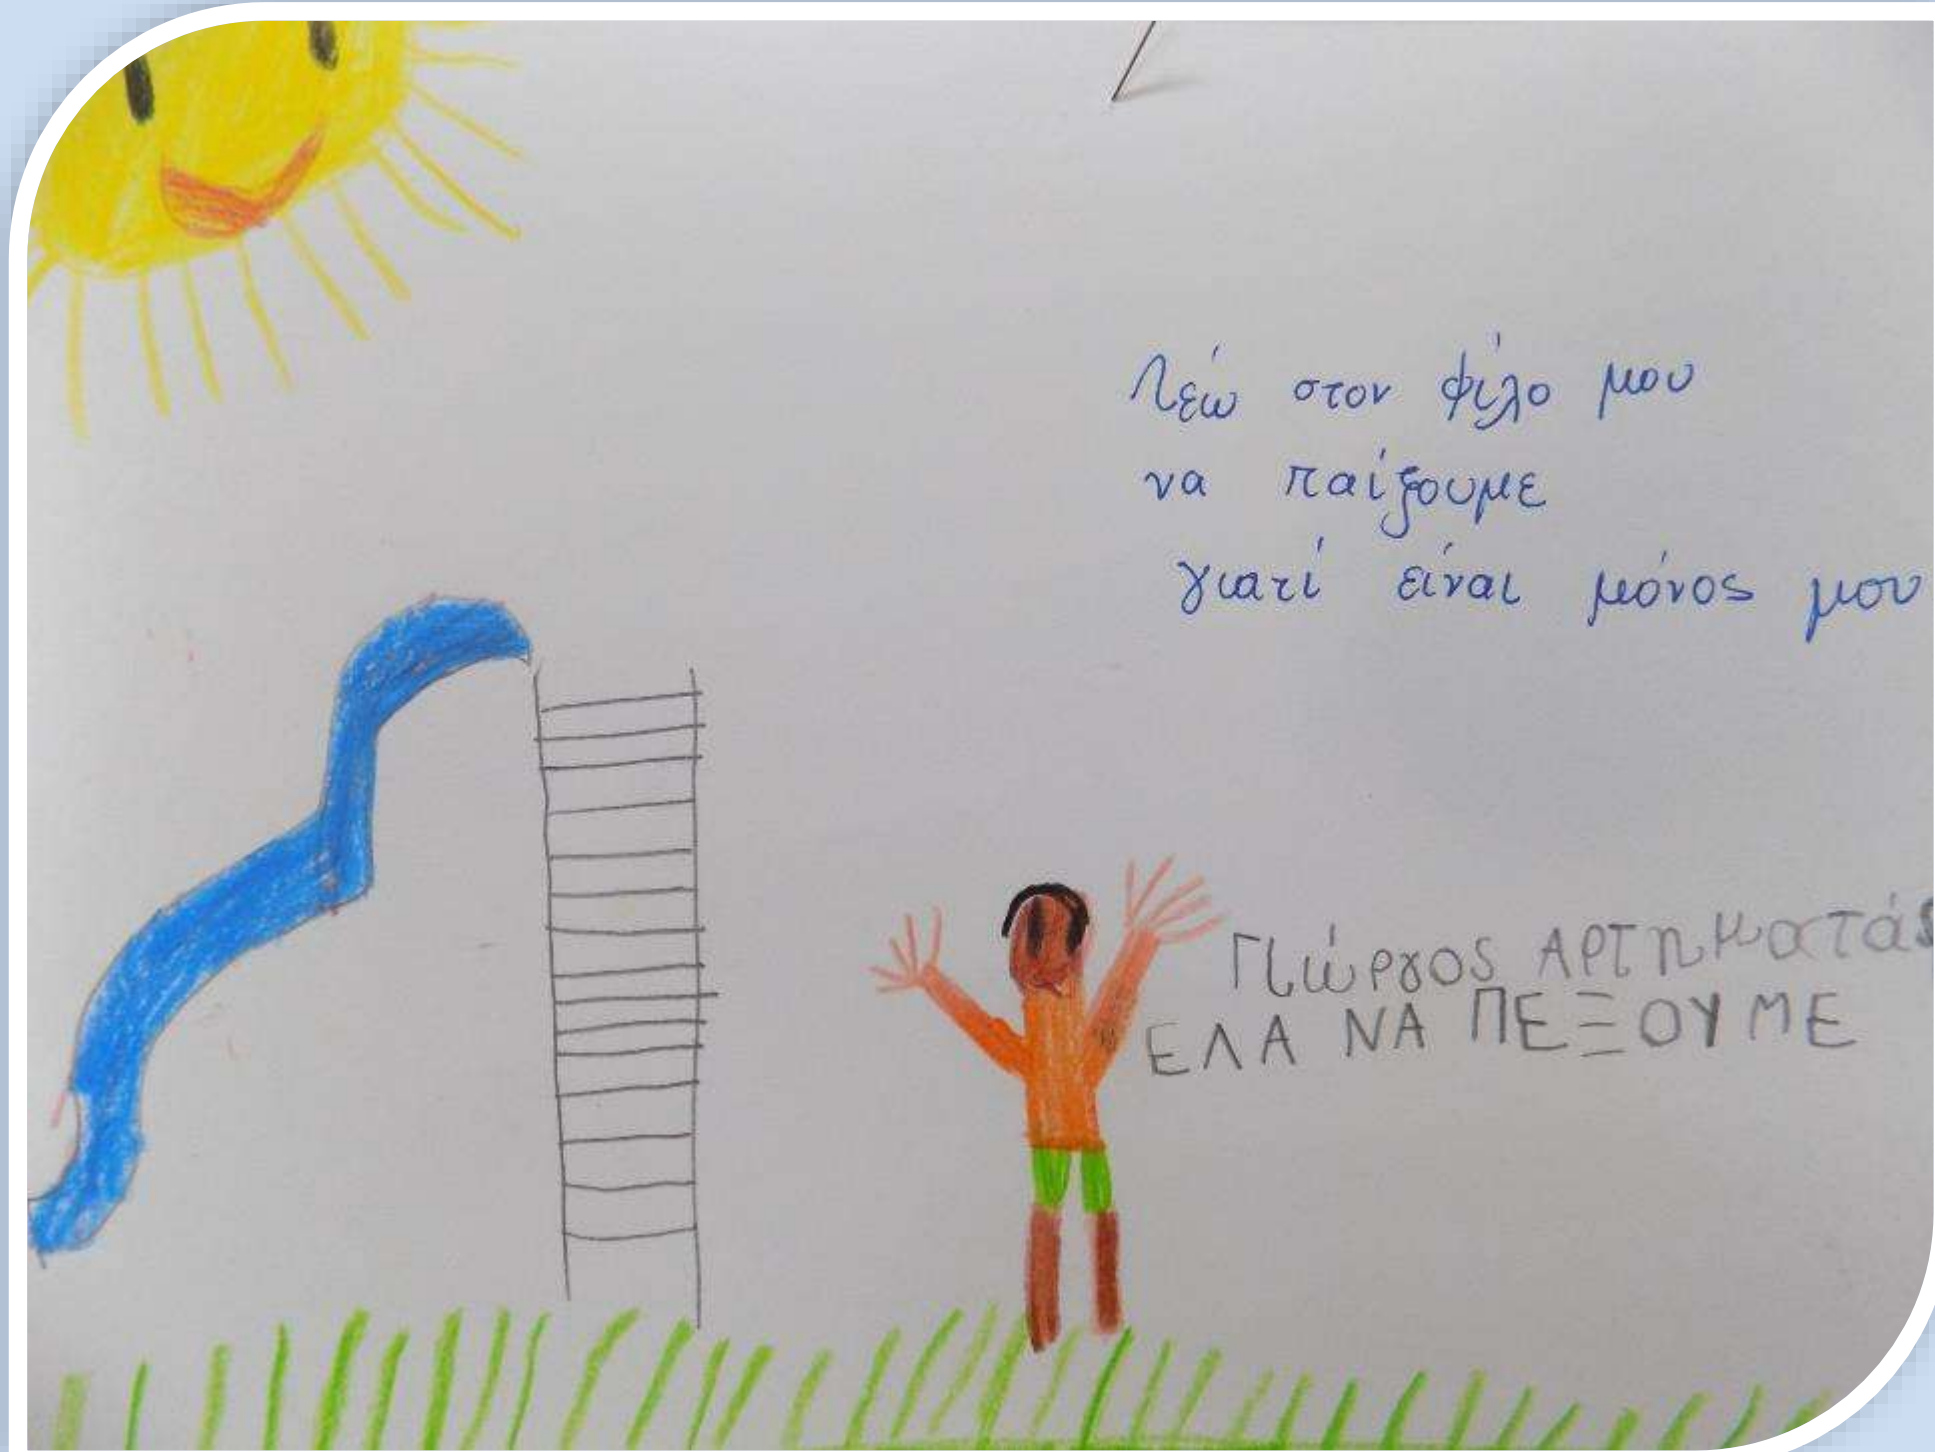 Λέω στον φίλο μου
να παίξουμε
γιατί είναι μόνος μου
Γιώργος ΑΡΤηματάς
ΕΛΑ ΝΑ ΠΕΞΟΥΜΕ